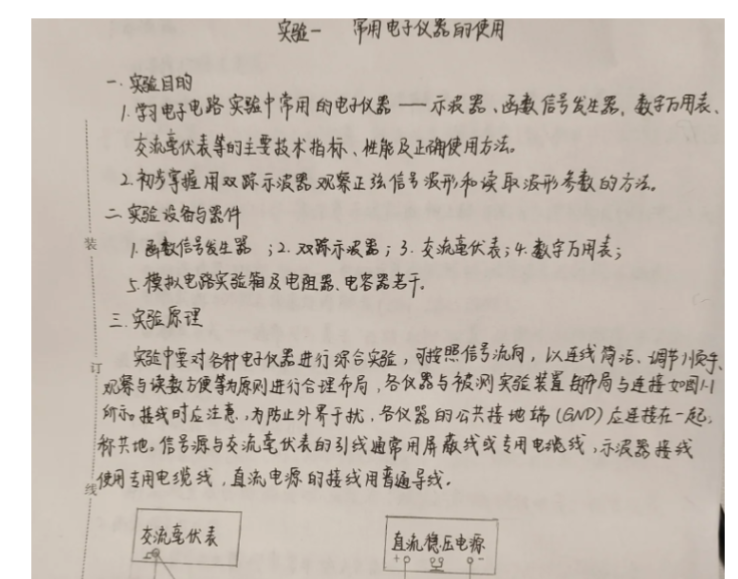 实验一 常用电子仪器的使用
一.实验目的
1.学习电子电路实验中常用的电子仪器——示波器、函数信号发生器,数字万用表、
交流毫伏表等的主要技术指标、性能及正确使用方法。
2.初步掌握用双踪示波器观察正弦信号波形和读取波形参数的方法。
二.实验设备与器件
1.函数信号发生器;2.双踪示波器;3.交流毫伏表;4.数字万用表;
5.模拟电路实验箱及电阻器、电容器若干。
三.实验原理
实验中要对各种电子仪器进行综合实验,可按照信号流向,以连线简洁、调节顺手、
观察与读数方便等为原则进行合理布局,各仪器与被测实验装置的布局与连接如图1-1
所示.接线时应注意,为防止外界干扰,各仪器的公共接地端(GND)应连接在一起,
称共地。信号源与交流毫伏表的引线通常用屏蔽线或专用电缆线,示波器接线
使用专用电缆线,直流电源的接线用普通导线。
装
订
线
交流毫伏表
直流稳压电源
+ -